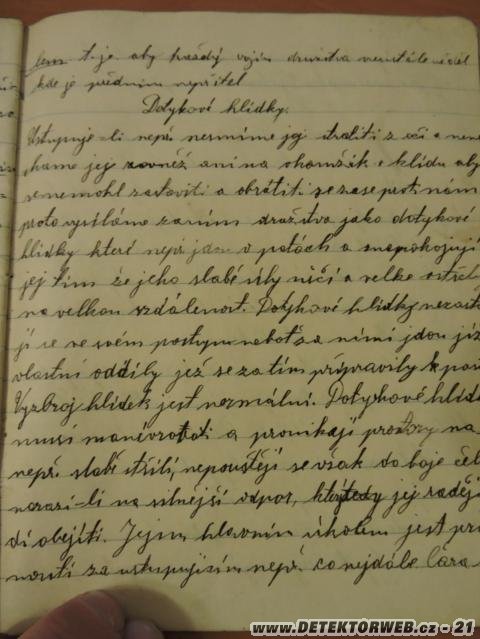 lem t.j. aby každý vojín družstva neustále věděl
kde je předním nepřítel
Dotykové hlídky.
Ustupuje-li nepř nesmíme jej ztratiti z očí a nene
cháme jej rovněž ani na okamžik v klidu aby
se nemohl zastaviti a obrátiti se zase proti nám
proto vysíláme za ním družstva jako dotykové
hlídky které nepř jdou v patách a znepokojují
jej tím že jeho slabé síly ničí a velké ostřel
na velkou vzdálenost. Dotykové hlídky nezasta
jí se ve svém postupu neboť za nimi jdou již
vlastní oddíly jež se za tím připravily k
Výzbroj hlídek jest normální. Dotykové hlíd
musí manévrovati a pronikají prostory na
nepř. slabě střílí, nepouštějí se však do boje čel
narazí-li na silnější odpor, hlýtedy jej raději
dí obejíti. Jejím hlavním úkolem jest pro
nouti za ustupujícím nepř. co nejdále Čára
WWW.DETEKTORWEB.cz - 21